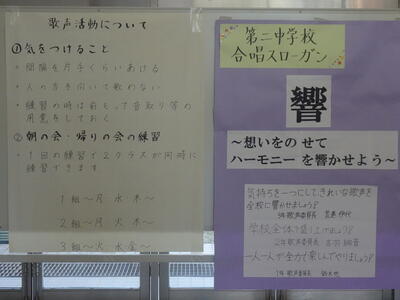 歌声活動について
①気をつけること
・間隔を片手くらいあける
・人の方を向いて歌わない
・練習の時は前もって音取り等の
用意をしておく
②朝の会・帰りの会の練習
・1回の練習で2クラスが同時に
練習できます
1組〜月 水 木〜
2組〜月 火 木〜
3組〜火 水 金〜
第二中学校
合唱スローガン
響
〜想いをのせて
ハーモニーを響かせよう〜
気持ちを一つにしてきれいな歌声を
全校に響かせましょう!
3年歌声委員長
学校全体で盛り上げましょう!
2年歌声委員長
一人一人が全力で楽しんでやりましょう!
1年歌声委員長